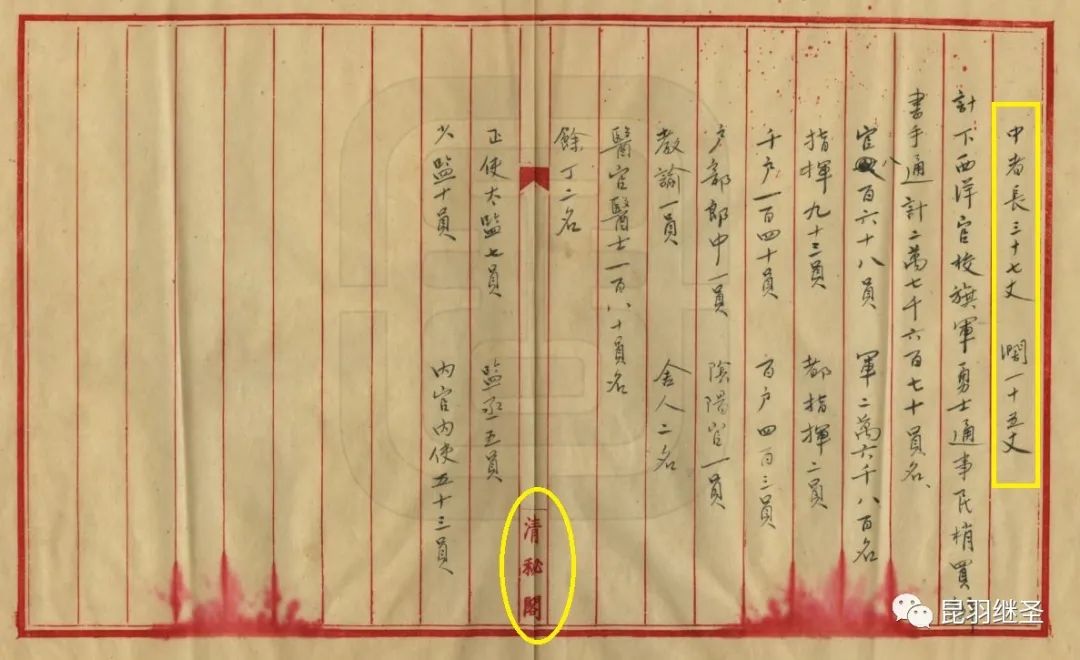 中者長三十七丈 濶一十五丈
計下西洋官校旗軍勇士通事民梢買
書手通計二萬七千六百七十員名、
官八百六十八員 軍二萬六千八百名
指揮九十三員 都指揮二員
千戶一百四十員 百戶四百三員
戶部郎中一員 陰陽官一員
教諭一員 舍人二名
醫官醫士一百八十員名
餘丁二名
清秘閣
正使太監七員 監丞五員
少監十員 內官內使五十三員
昆羽继圣